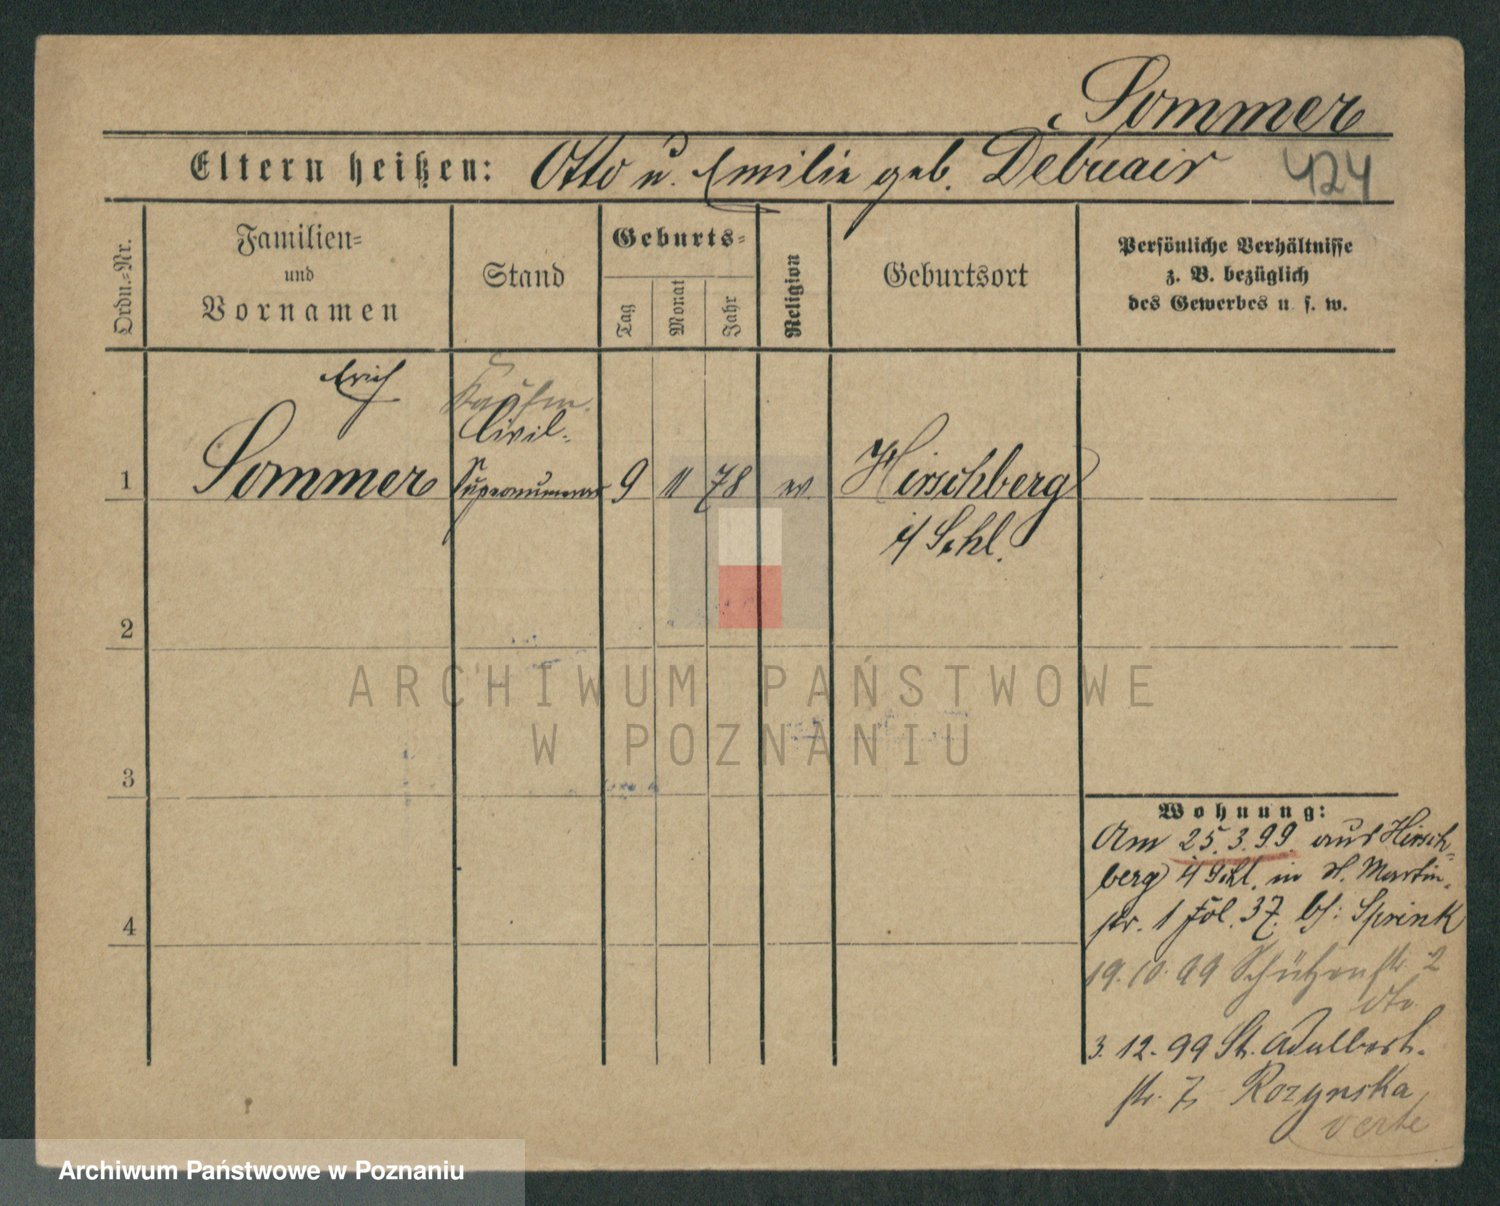 Sommer
Eltern heißen: Otto u. Emilie geb. Debuair
424
Ordn.-Nr.
Familien-
und
Vornamen
Stand
Geburts-
Tag
Monat
Jahr
Religion
Geburtsort
Persönliche Verhältnisse
z. B. bezüglich
des Gewerbes u. s. w.
Erich
Kaufm.
Civil-
1 Sommer Supernumerar 9 11 78 ev. Hirschberg
i/ Schl.
2
3
4
ARCHIWUM PAŃSTWOWE
W POZNANIU
Wohnung:
Am 25.3.99. aus Hirsch-
berg i/ Schl. in St. Martin-
str. 1 Fol. 37. bei: Sprink
19.10.99 Schützenstr 2
dto
3.12.99 St. Adalbert-
str. 7 Rozynska
verte
Archiwum Państwowe w Poznaniu